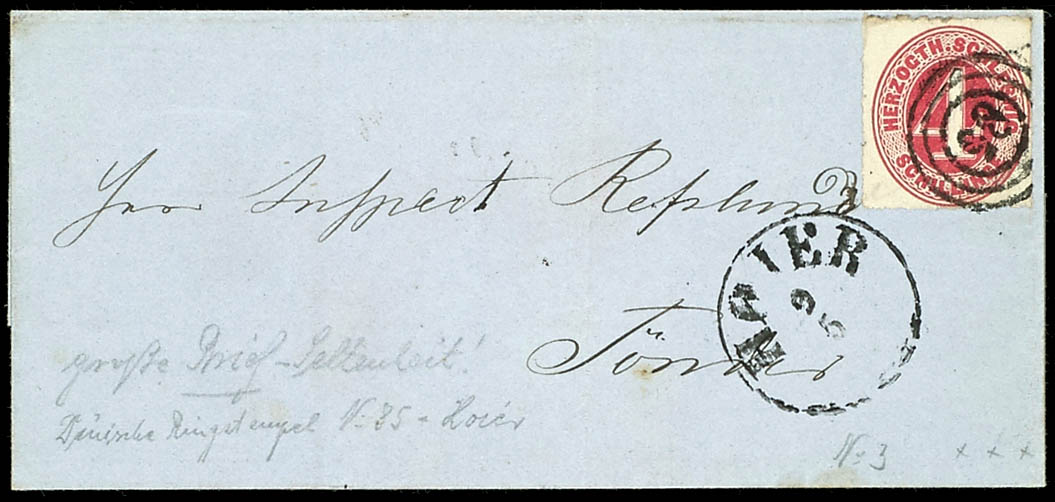 HERZOGTH. SCHLESWIG
4
SCHILLING
Herr Inspect Refslund
Tönder
HOIER
9
5
große Brief-Seltenheit!
Dänische Ringstempel No 35 = Hoier
No 3 x x x